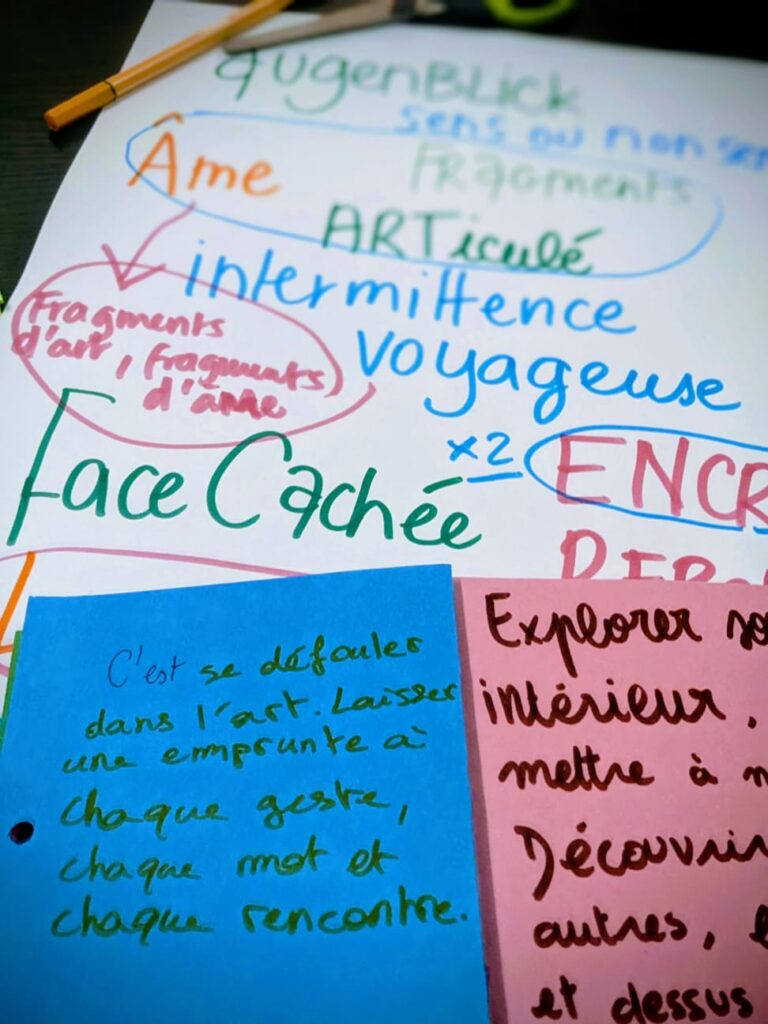 AugenBLick
sens ou non sen
Âme
Fragments
ARTiculé
intermittence
Fragments
d'art, fragments
d'âme
voyageuse
x2
ENCR
Face Cachée
C'est se défouler
dans l'art. Laisser
une emprunte à
chaque geste,
chaque mot et
chaque rencontre.
Explorer so
intérieur,
mettre à n
Découvrir
autres,
et dessus